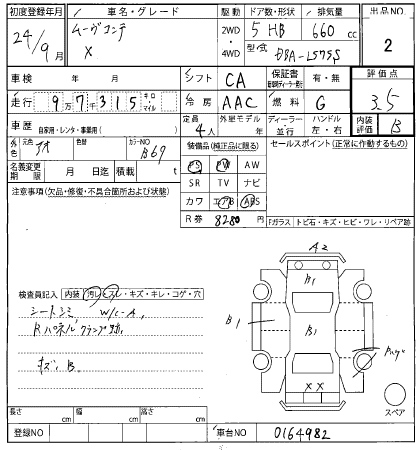 初度登録年月 車名・グレード 駆動 ドア数・形状 排気量 出品NO
24/9月 ムーヴコンテ 2WD・4WD 5 HB 660cc 2
X 型式 DBA-L575S
車検 年 月 シフト CA 保証書 有・無 評価点
走行 9万7千315 キロ マイル 冷房 AAC 燃料 G 3.5
車歴 自家用・レンタ・事業用( ) 定員 4人 外車モデル 年 ディーラー・並行 ハンドル 左・右 内装評価 B
外色 元色 アオ 色替 カラーNO B69 装備品(純正品に限る) セールスポイント(正常に作動するもの)
名義変更期限 月 日迄 積載 t PS PW AW
注意事項(欠品・修復・不具合箇所および状態) SR TV ナビ
カワ エアB ABS
R券 8280円 Fガラス トビ石・キズ・ヒビ・ワレ・リペア跡
A2
B1
検査員記入 内装 汚レ・スレ・キズ・キレ・コゲ・穴
シートシミ W/C-A,
B1 B1
Rパネルクランプ跡,
キズ, B.
X X
スペア
長さ cm 幅 cm 高さ cm
登録NO 車台NO 0164982